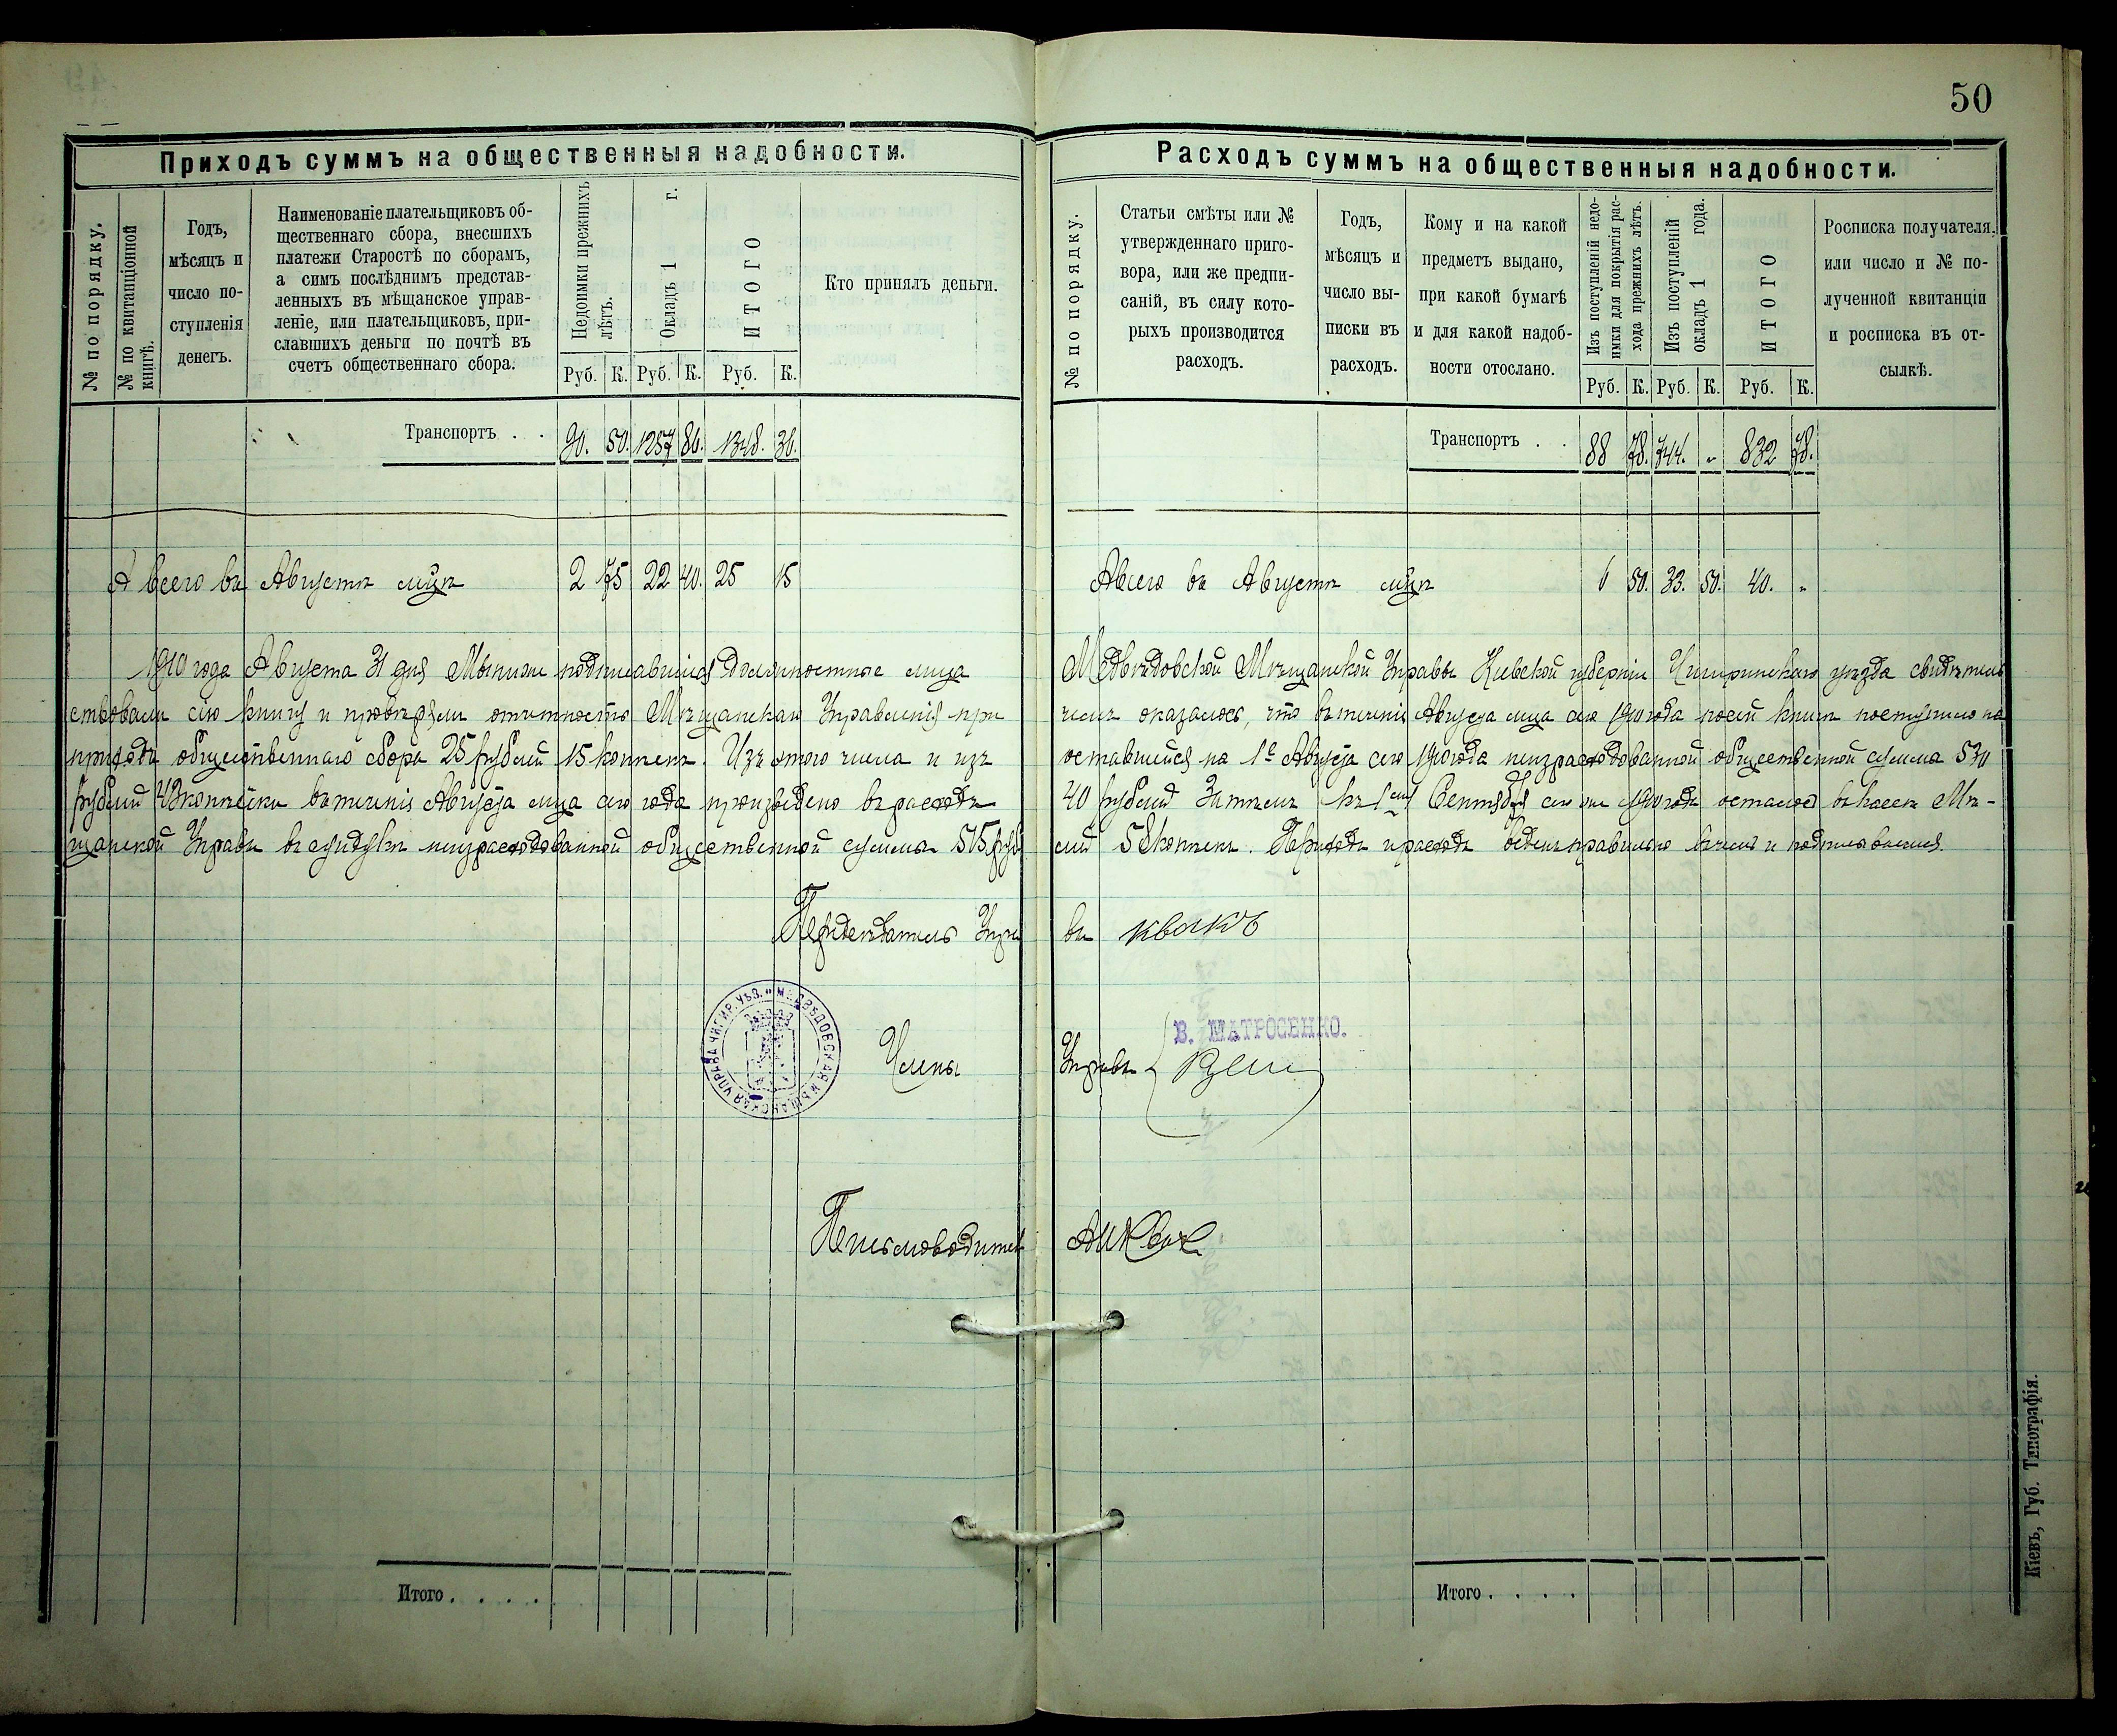 50
Приходъ суммъ на общественныя надобности.
№ по порядку.
№ по квитанціонной
книгѣ.
Годъ,
мѣсяцъ и
число по-
ступленія
денегъ.
Наименованіе плательщиковъ об-
щественнаго сбора, внесшихъ
платежи Старостѣ по сборамъ,
а симъ послѣднимъ представ-
ленныхъ въ мѣщанское управ-
леніе, или плательщиковъ, при-
славшихъ деньги по почтѣ въ
счетъ общественнаго сбора.
Недоимки прежнихъ
лѣтъ.
Окладъ 1 г.
ИТОГО
Руб. К. Руб. К. Руб. К.
Кто принялъ деньги.
Транспортъ . . 90. 50. 1257 86. 1348. 36.
А всего въ Августѣ м-цѣ 2 75 22 40. 25 15
1910 года Августа 31 дня Мы ниже подписавшіеся Должностные лица
ствовали сію книгу и провѣряли отчетность Мѣщанскаго Управленія при
приходъ общественнаго сбора 25 рублей 15 копѣекъ. Изъ этого числа и изъ
рублей 43 копѣйки въ теченіе Августа м-ца сего года произведено въ расходъ
щанской Управѣ въ сундукѣ неизрасходованной общественной суммы 515 руб
Предсѣдатель Упра
Члены
МЕДВѢДОВСКАЯ МѢЩАНСКАЯ УПРАВА ЧИГИР. УѢЗ.
Письмоводитель
Итого . . . .
Расходъ суммъ на общественныя надобности.
№ по порядку.
Статьи смѣты или №
утвержденнаго приго-
вора, или же предпи-
саній, въ силу кото-
рыхъ производится
расходъ.
Годъ,
мѣсяцъ и
число вы-
писки въ
расходъ.
Кому и на какой
предметъ выдано,
при какой бумагѣ
и для какой надоб-
ности отослано.
Изъ поступленій недо-
имки для покрытія рас-
хода прежнихъ лѣтъ.
Изъ поступленій
окладъ 1 года.
ИТОГО
Руб. К. Руб. К. Руб. К.
Росписка получателя.
или число и № по-
лученной квитанціи
и росписка въ от-
сылкѣ.
Транспортъ . . 88 78. 744. " 832 78.
А всего въ Августѣ м-цѣ 6 50. 33. 50. 40. "
Медвѣдовской Мѣщанской Управы Кіевской губерніи Чигиринскаго уѣзда свидѣтель
чемъ оказалось, что въ теченіе Августа м-ца сего 1910 года по сей книгѣ поступило на
оставшейся на 1е Августа сего 1910 года неизрасходованной общественной суммы 530
40 рублей Затѣмъ къ 1му Сентября сего же 1910 года осталось въ кассѣ Мѣ-
лей 58 копѣекъ. Приходъ и расходъ веденъ правильно въ чемъ и подписываемся.
вы Квакъ
В. МАТРОСЕНКО.
Управы
Итого . . . .
Кіевъ, Губ. Типографія.